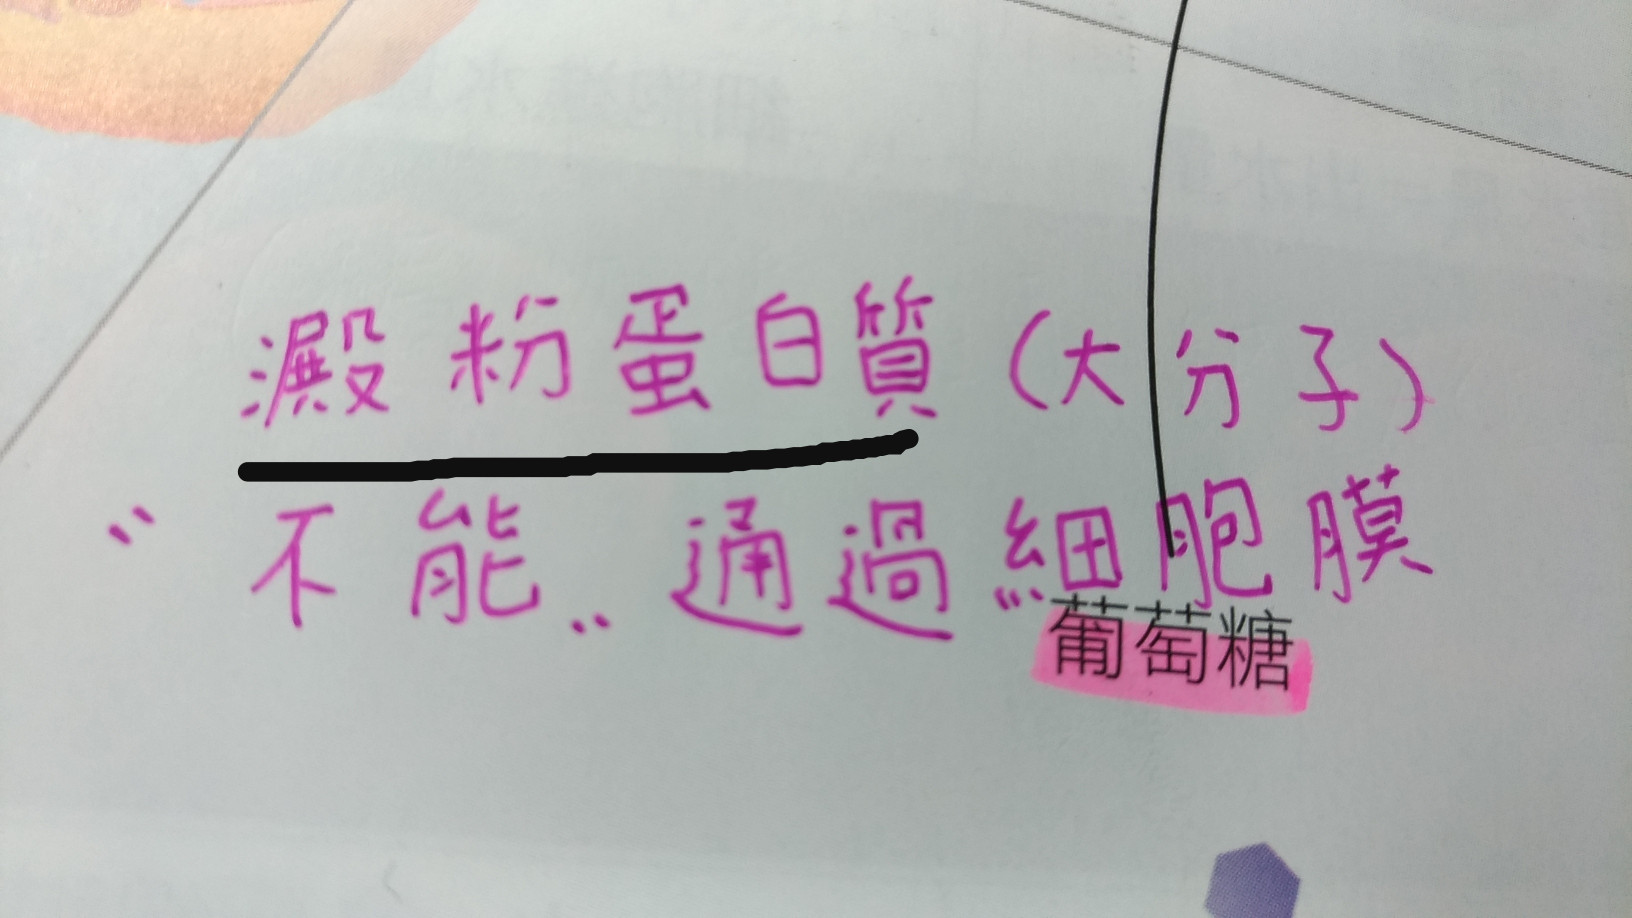 澱粉蛋白質(大分子)
"不能"通過細胞膜
葡萄糖